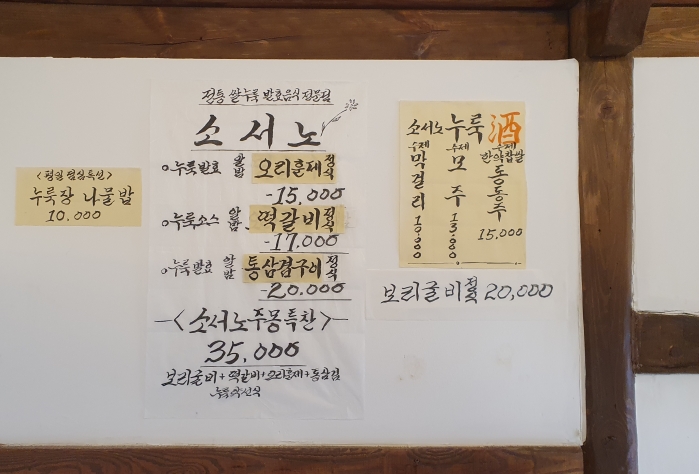 누룩장 나물밥
10.000
정통 쌀누룩 발효음식 전문점
소서노
누룩발효 쌀밥 오리훈제 정식
-15.000
누룩소스 쌀밥 떡갈비 정식
-17.000
누룩발효 쌀밥 통삼겹구이 정식
-20.000
<소서노주몽특찬>
35.000
보리굴비+떡갈비+오리훈제+통삼겹
소서노 누룩 酒
수제 막걸리 10.000
수제 모주 13.000
수제 한약찹쌀 동동주
15.000
보리굴비 정식 20,000